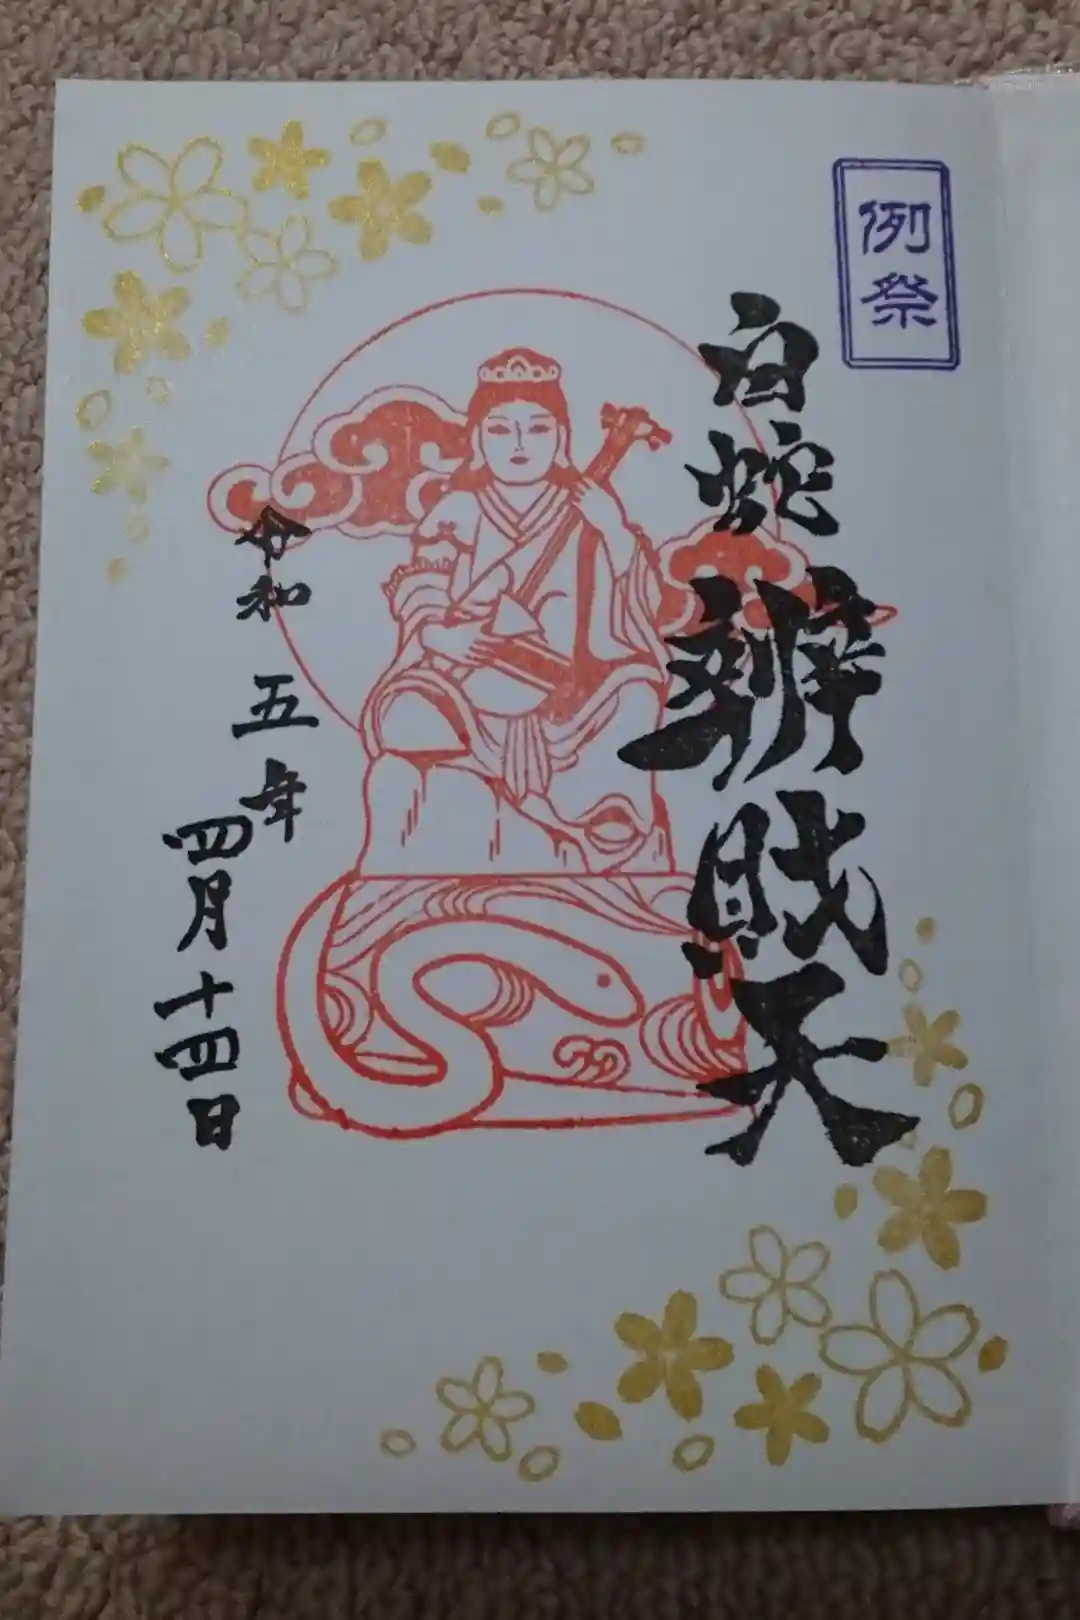 例祭
白蛇辨財天
令和五年
四月十四日